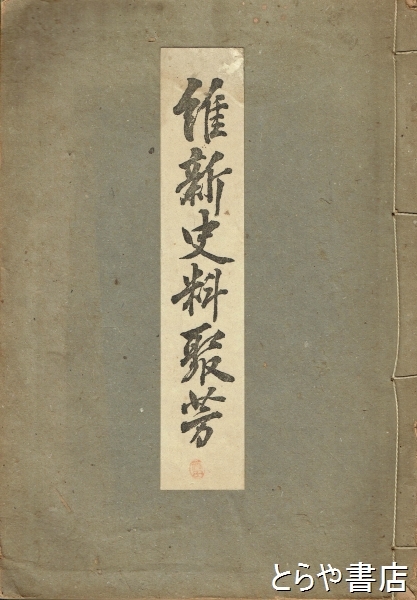 維新史料聚芳
とらや書店